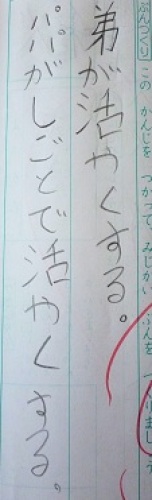 ぶんづくり この かんじを つかって みじかい ぶんを つくりましょう
弟が活やくする。
パパがしごとで活やくする。